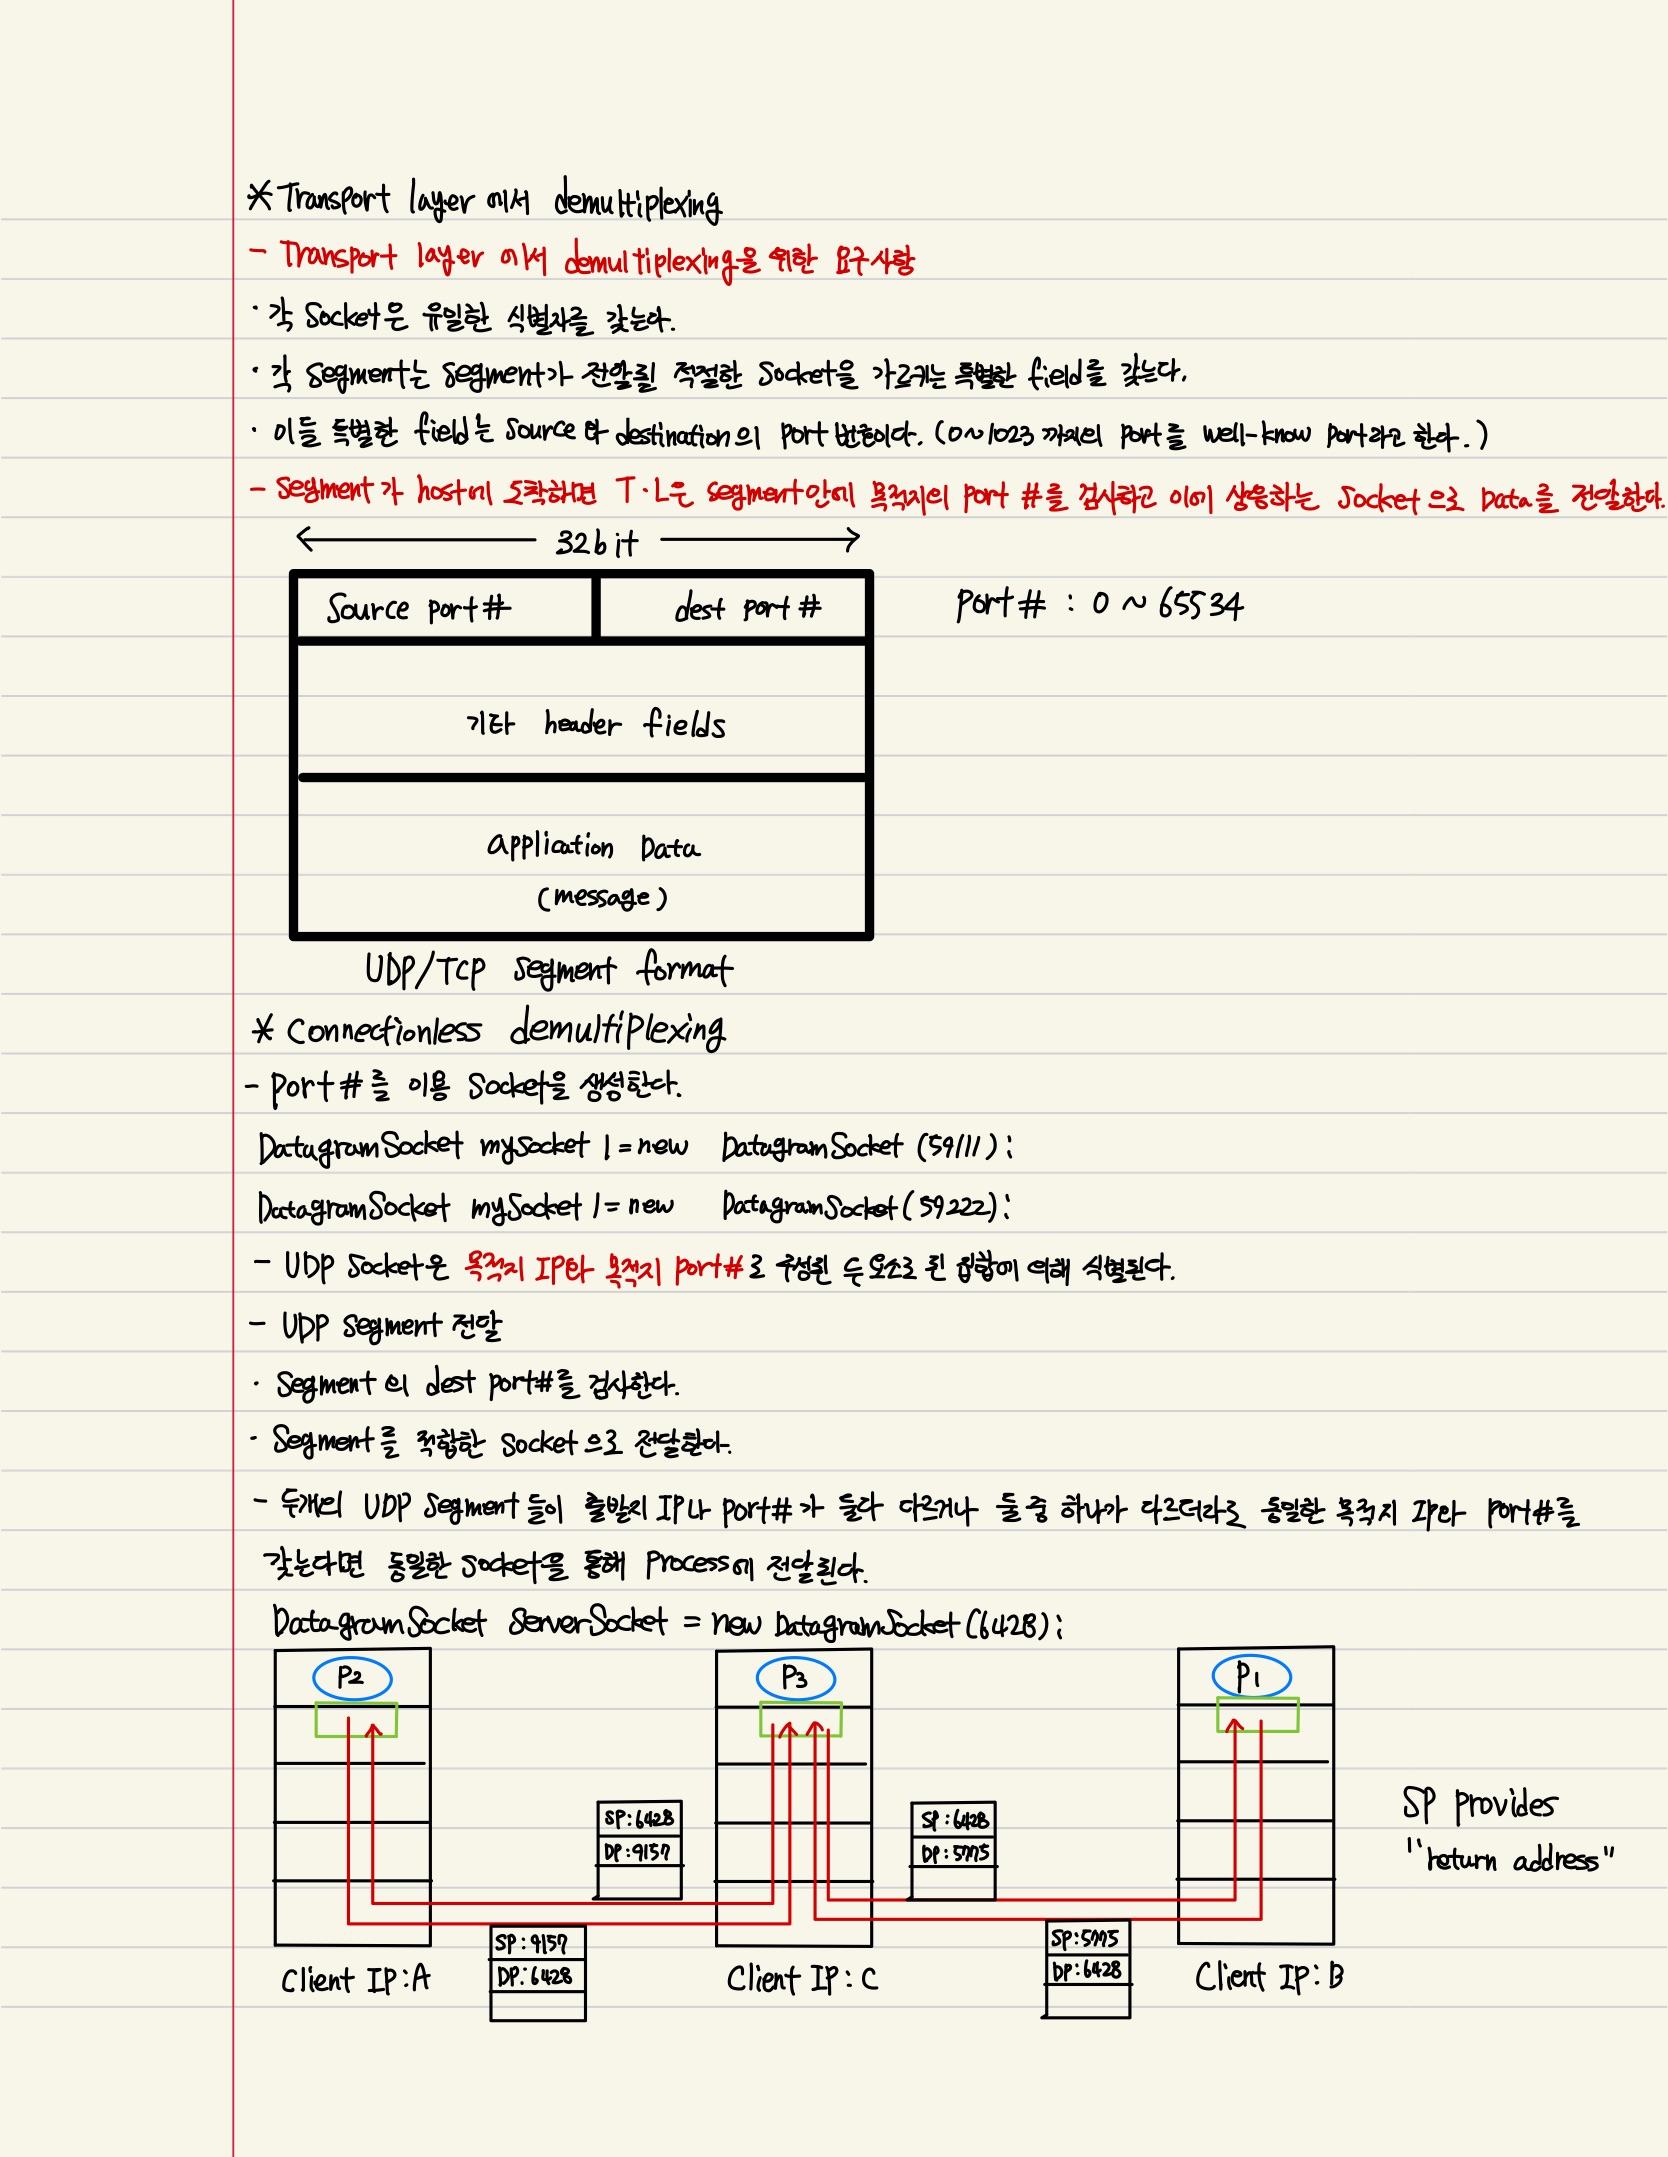 * Transport layer 에서 demultiplexing
- Transport layer 에서 demultiplexing을 위한 요구사항
· 각 Socket은 유일한 식별자를 갖는다.
· 각 segment는 segment가 전달될 적절한 Socket을 가르키는 특별한 field를 갖는다.
· 이들 특별한 field는 source와 destination의 port 번호이다. (0~1023 까지의 port를 well-know port라고 한다.)
- segment가 host에 도착하면 T·L은 segment안에 목적지의 port #를 검사하고 이에 상응하는 Socket으로 Data를 전달한다.
32bit
Source port# dest port#
Port# : 0 ~ 65534
기타 header fields
application Data
(message)
UDP/TCP segment format
* Connectionless demultiplexing
- Port#를 이용 Socket을 생성한다.
DatagramSocket mysocket 1 = new DatagramSocket (59111);
DatagramSocket mySocket 1 = new DatagramSocket(59222);
- UDP Socket은 목적지 IP와 목적지 port#로 구성된 두 요소로 된 집합에 의해 식별된다.
- UDP segment 전달
· Segment의 dest port#를 검사한다.
· Segment를 적합한 socket으로 전달한다.
- 두개의 UDP segment 들이 출발지 IP나 port#가 둘다 다르거나 둘 중 하나가 다르더라도 동일한 목적지 IP와 port#를
갖는다면 동일한 socket을 통해 Process에 전달된다.
DatagramSocket ServerSocket = new DatagramSocket(6428);
P2 P3 P1
SP:6428
DP:9157
SP:6428
DP:5775
SP provides
"return address"
SP:9157
DP:6428
SP:5775
DP:6428
Client IP:A Client IP:C Client IP:B